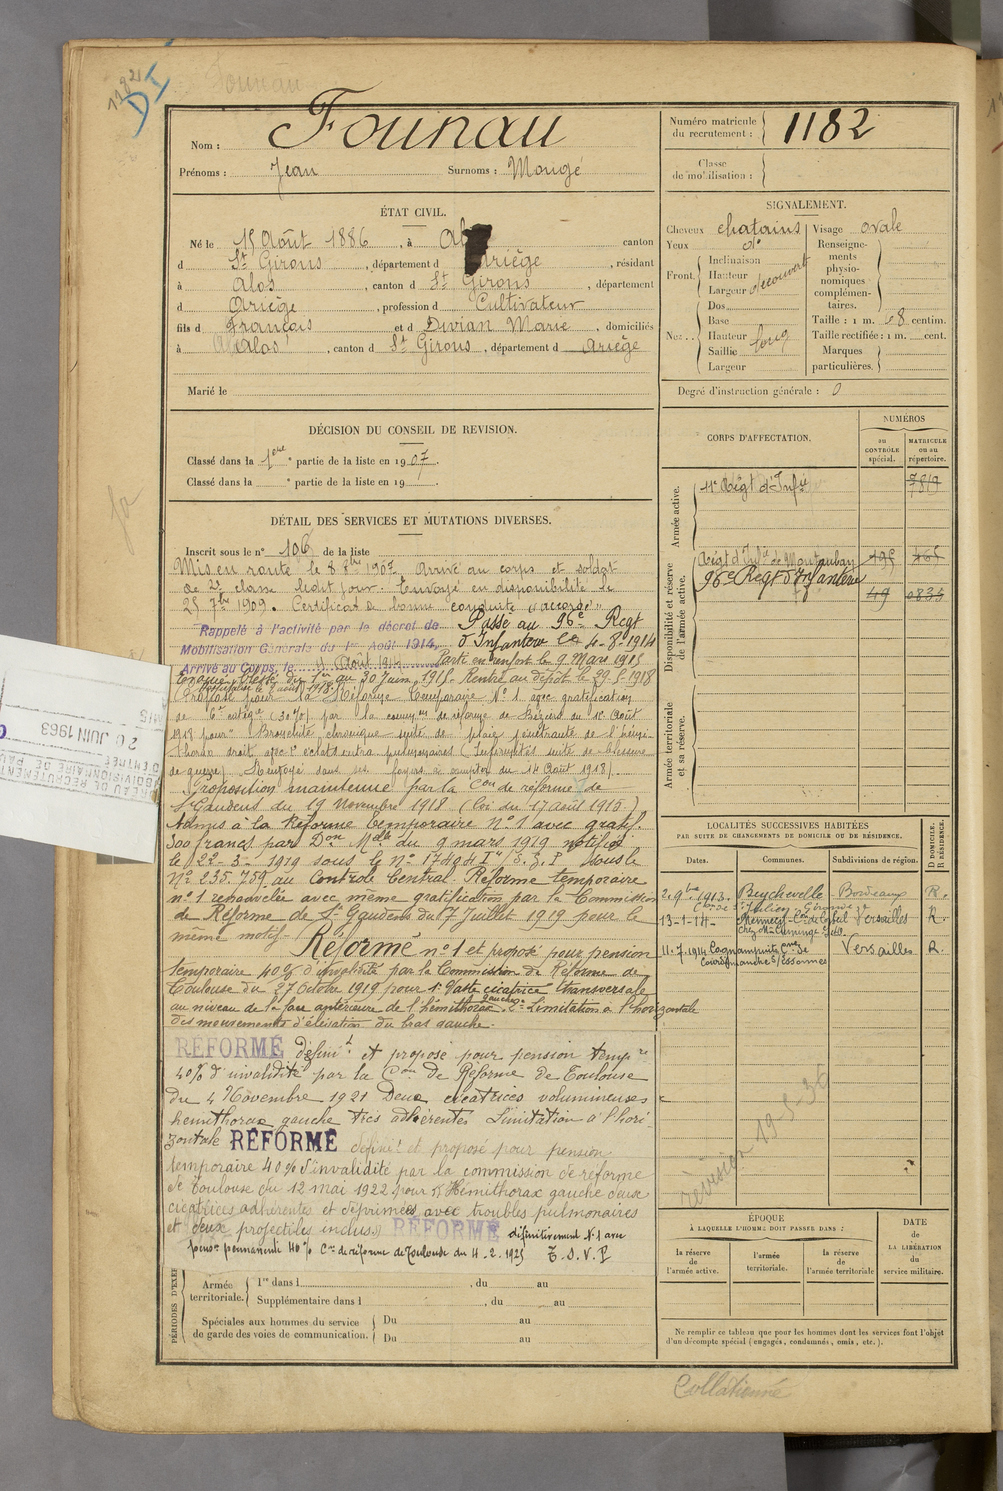 1182
DI
Founau
Nom : Founau
Prénoms : Jean Surnoms : Mougé
Numéro matricule du recrutement : 1182
Classe de mobilisation :
ÉTAT CIVIL.
Né le 15 Août 1886, à canton
d St Girons, département d Ariège, résidant
à Alos, canton d St Girons, département
d Ariège, profession d Cultivateur
fils d François et d Divian Marie, domiciliés
à Alos, canton d St Girons, département d Ariège
Marié le
SIGNALEMENT.
Cheveux chatains Visage ovale
Yeux do Renseignements physionomiques complémentaires.
Front. Inclinaison
Hauteur
Largeur découvert
Nez.. Dos
Base
Hauteur long
Saillie
Largeur
Taille : 1 m. 68 centim.
Taille rectifiée : 1 m. cent.
Marques particulières.
Degré d'instruction générale : 0
DÉCISION DU CONSEIL DE REVISION.
Classé dans la 1ère partie de la liste en 1907.
Classé dans la partie de la liste en 19
CORPS D'AFFECTATION.
NUMÉROS
au CONTRÔLE spécial.
MATRICULE ou au répertoire.
Armée active.
11e Régt d'Infie
Disponibilité et réserve de l'armée active.
Régt d'Infie de Montauban
96e Régt d'Infanterie
49
Armée territoriale et sa réserve.
DÉTAIL DES SERVICES ET MUTATIONS DIVERSES.
Inscrit sous le n° 106 de la liste
Mis en route le 8 8bre 1907 Arrivé au corps et soldat
de 2e classe ledit jour. Envoyé en disponibilité le
25 7bre 1909. Certificat de bonne conduite "accordé"
Rappelé à l'activité par le décret de Passé au 96e Regt
Mobilisation Générale du 1er Août 1914 d'Infanterie le 4-8-1914
Arrivé au Corps, le Août 1914 Parti en renfort le 9 Mars 1915
du 1er au 30 Juin 1915. Rentré au dépôt le
Proposé pour la Réforme Temporaire N° 1 avec gratification
de 6e catégie (30%) par la de réforme de Béziers du 1er Août
1918 pour "Bronchite chronique suite de plaie pénétrante de l'hémi-
thorax droit avec éclats intra pulmonaires (Infirmités suite de blessure
de guerre). Renvoyé dans ses foyers à compter du 14 Août 1918).
Proposition maintenue par la Con de réforme de
St Gaudens du 19 Novembre 1918 (loi du 17 août 1915.)
Admis à la Réforme Temporaire N° 1 avec gratif.
300 francs par Don Melle du 9 mars 1919 notifié
le 22-3-1919 sous le N° 17494 I"/S.G.P Sous le
N° 235.759 au Contrôle Central. Réforme temporaire
n° 1 renouvelée avec même gratification par la Commission
de Réforme de St Gaudens du 7 Juillet 1919 pour le
même motif. Réformé n° 1 et proposé pour pension
temporaire 40% d'invalidité par la Commission de Réforme de
Toulouse du 27 Octobre 1919 pour 1° Vaste cicatrice transversale
au niveau de la face antérieure de l'hémithorax gauche. 2° Limitation à l'horizontale
des mouvements d'élévation du bras gauche.
RÉFORMÉ définit et proposé pour pension tempre
40% d'invalidité par la Con de Réforme de Toulouse
du 4 Novembre 1921 Deux cicatrices volumineuses
hemithorax gauche très adhérentes Limitation à l'hori-
zontale RÉFORMÉ définit et proposé pour pension
temporaire 40% d'invalidité par la commission de réforme
de Toulouse du 12 mai 1922 pour Hémithorax gauche deux
cicatrices adhérentes et déprimées avec troubles pulmonaires
et deux projectiles inclus RÉFORMÉ définitivement N. 1 avec
pension permanente 40% Con de réforme de Toulouse du 4-2-1925 T.S.V.P
LOCALITÉS SUCCESSIVES HABITÉES
PAR SUITE DE CHANGEMENTS DE DOMICILE OU DE RÉSIDENCE.
Dates. Communes. Subdivisions de région. D DOMICILE. R RÉSIDENCE.
2.9bre 1913. Beychevelle Bordeaux R.
St Julien Gironde
13-1-14- Mennecy Con de Corbeil Versailles R.
11-7-1914 Versailles R.
Essonnes
révision 19-5-36
ÉPOQUE
À LAQUELLE L'HOMME DOIT PASSER DANS :
la réserve de l'armée active.
l'armée territoriale.
la réserve de l'armée territoriale
DATE de LA LIBÉRATION du service militaire.
Ne remplir ce tableau que pour les hommes dont les services font l'objet
d'un décompte spécial (engagés, condamnés, omis, etc.).
PÉRIODES D'EXER
Armée territoriale. 1re dans l , du au
Supplémentaire dans l , du au
Spéciales aux hommes du service de garde des voies de communication. Du au
Du au
Collationné
20 JUIN 1963